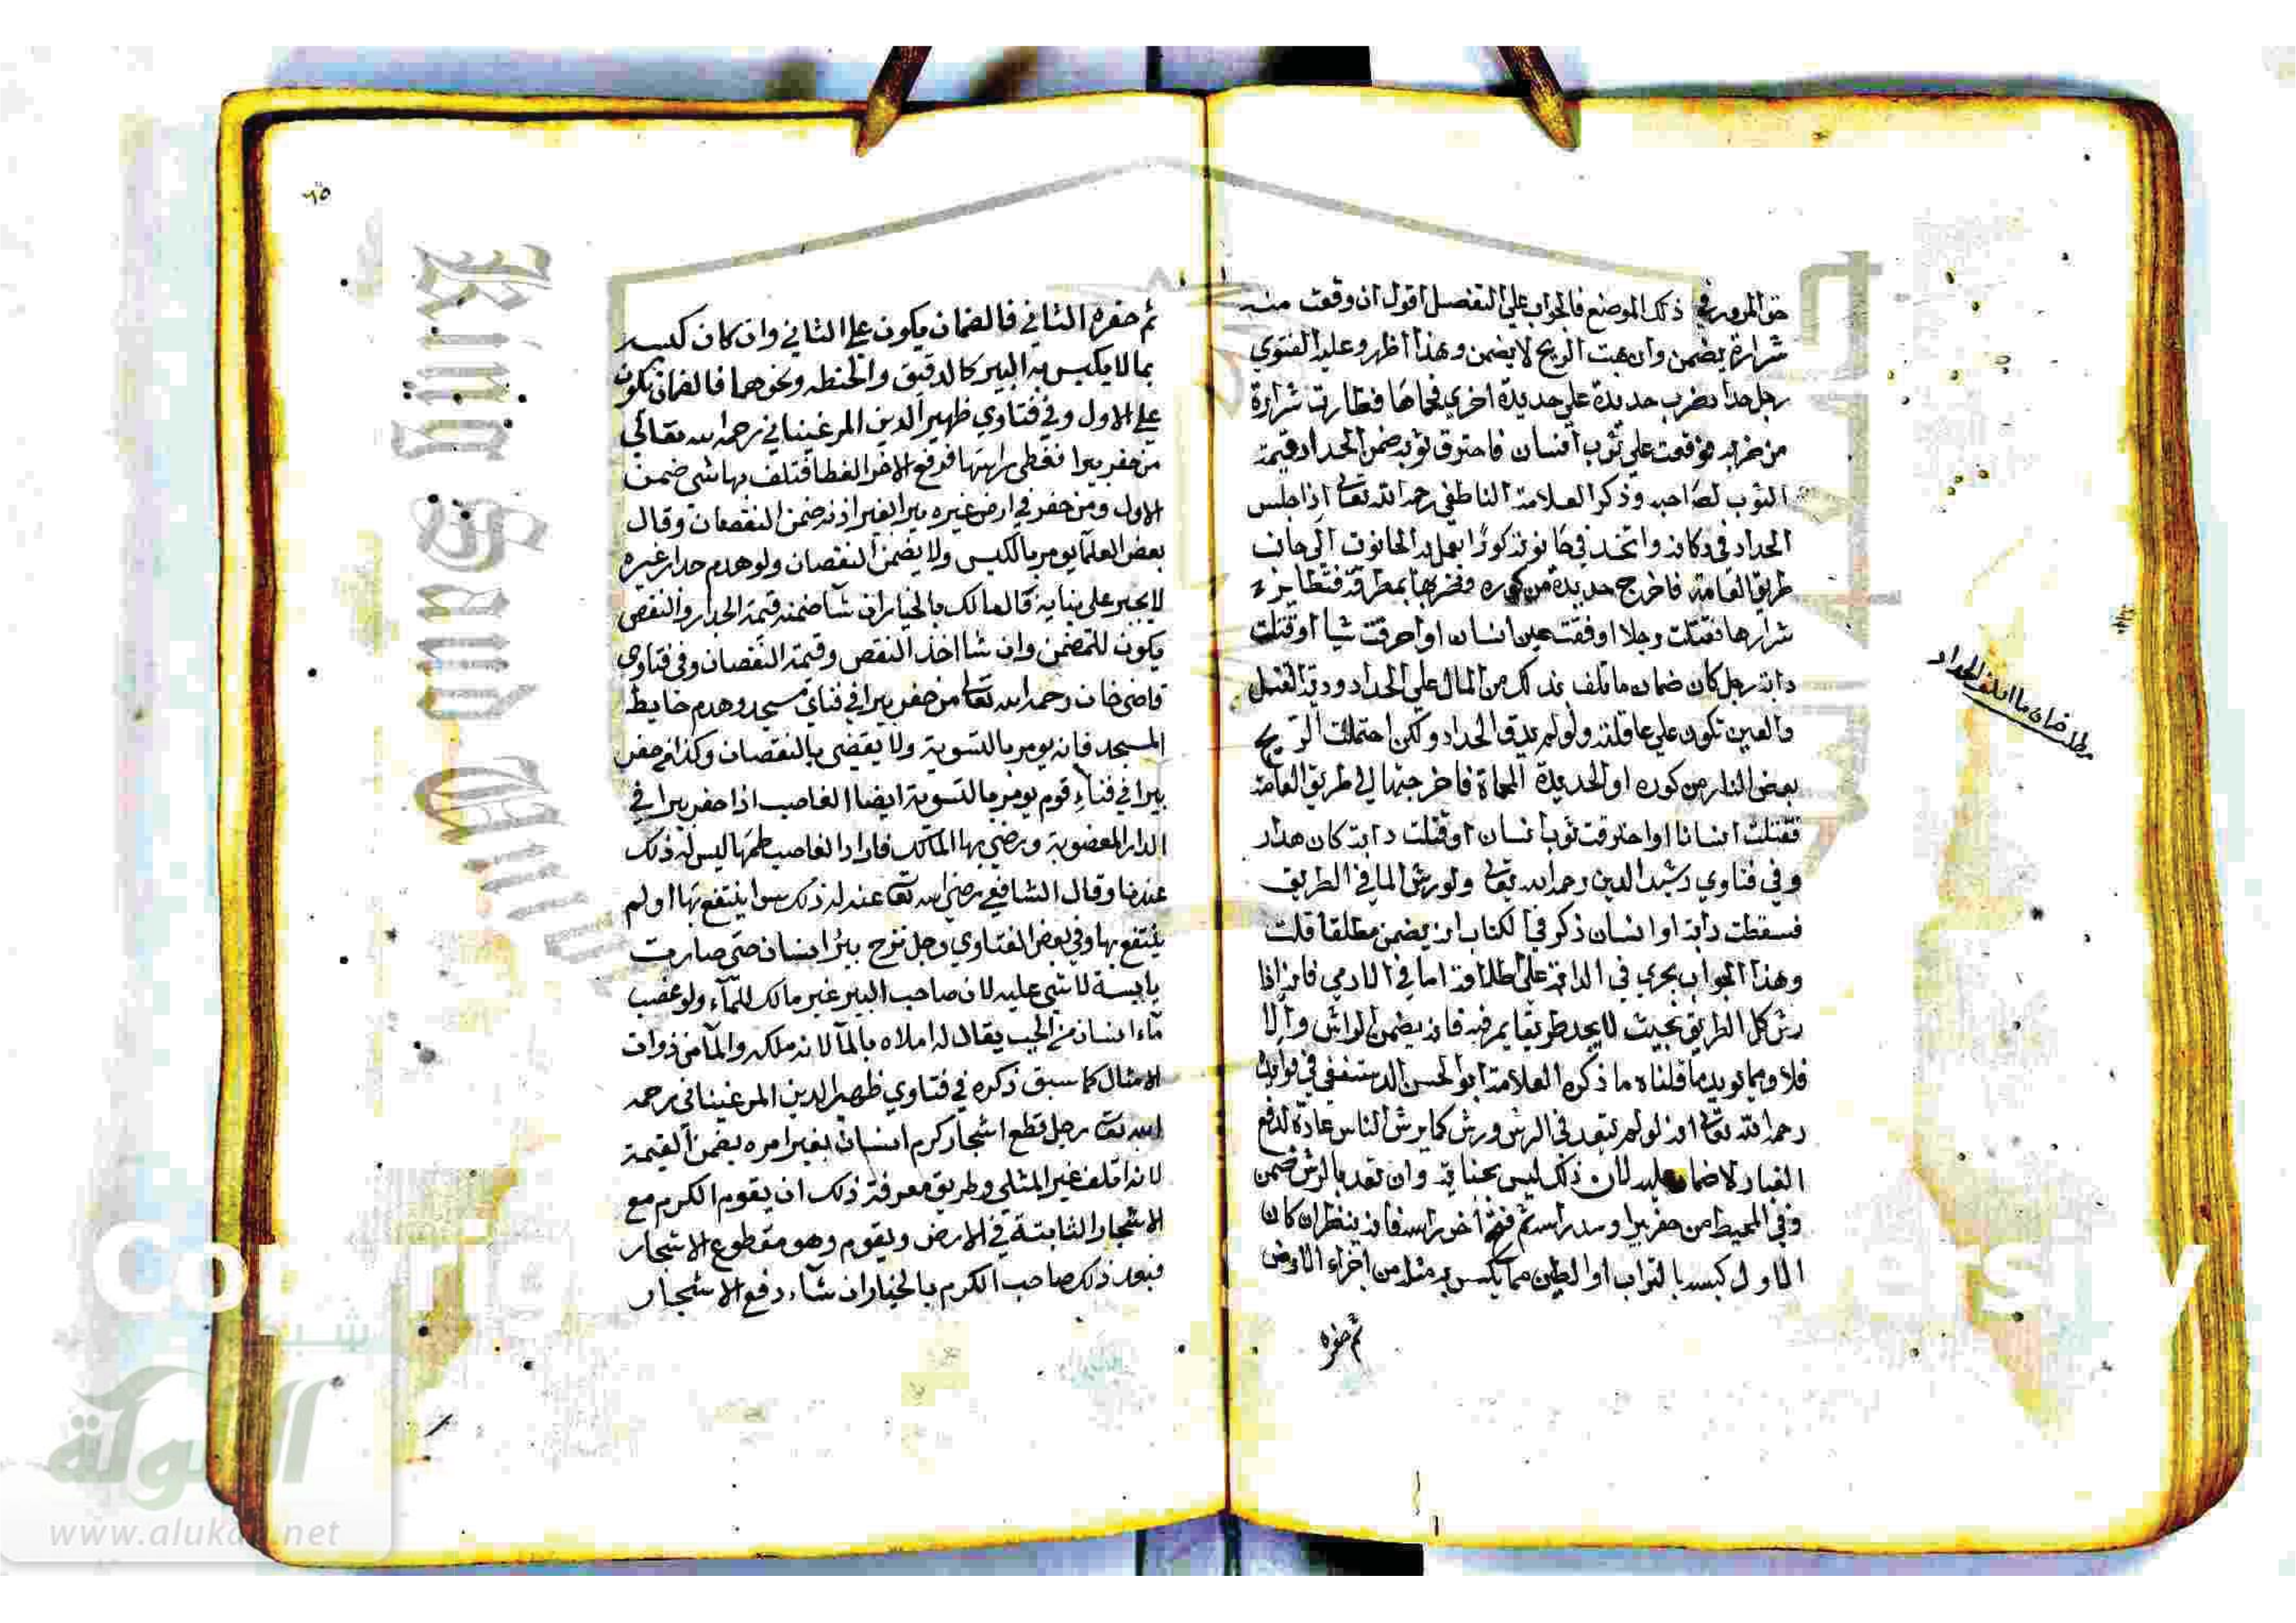 حق المرور في ذلك الموضع فالجواب علي التفصيل اقول ان وقعت منه
شرارة يضمن وان هبت الريح لا يضمن وهذا اظهر وعليه الفتوي
رجل حداد يضرب حديدة علي حديدة اخري فحماها فطارت شرارة
من ضربه فوقعت علي ثوب انسان فاحترق ثوبه ضمن الحداد قيمة
الثوب لصاحبه وذكر العلامة الناطفي رحمه الله تعالى اذا جلس
الحداد في دكانه واتخذ في حانوته كورا يعمل به الحانوت الي جانب
طريق العامة فاخرج حديدة من كوره فضربها بمطرقة فتطاير
شرارها فقتلت رجلا او فقت عين انسان او احرقت شيا او قتلت
دابة رجل كان ضمان ما تلف بذلك من المال علي الحداد ودية القتل
والعين تكون علي عاقلته ولو لم يدق الحداد ولكن احتملت الريح
بعض النار من كوره او الحديدة المحماة فاخرجتها الي طريق العامة
فقتلت انسانا او احترقت ثوب انسان او قتلت دابة كان هدار
وفي فتاوي رشيد الدين رحمه الله تعالى ولو رش الما في الطريق
فسقطت دابة او انسان ذكر في الكتاب انه يضمن مطلقا قلت
وهذا الجواب يجري في الدابة علي اطلاقه اما في الادمي فانه اذا
رش كل الطريق بحيث لا يجد طريقا يمر فيه فانه يضمن الراش والا
فلا ومما يويد ما قلناه ما ذكره العلامة ابو الحسن الرستغفني في فوايده
رحمه الله تعالى انه لو لم يتعد في الرش ورش كما يرش الناس عادة لدفع
الغبار لا ضمان عليه لان ذلك ليس بجناية وان تعد بالرش ضمن
وفي المحيط من حفر بيرا وسد راسه ثم فتح اخر راسه فانه ينظر ان كان
الاول كبسه بالتراب او الطين مما يكبس به مثله من اجزاء الارض
ثم حفره
مطلب ضمان ما اتلف الحداد
٦٥
ثم حفره الثاني فالضمان يكون علي الثاني وان كان كبسه
بما لا يكبس به البير كالدقيق والحنطه ونحوهما فالضمان يكون
علي الاول وفي فتاوي ظهير الدين المرغيناني رحمه الله تعالي
من حفر بيرا فغطي راسها فرفع الاخر الغطا فتلف بها شي ضمن
الاول ومن حفر في ارض غيره بيرا بغير اذنه ضمن النقصان وقال
بعض العلما يومر بالكبس ولا يضمن النقصان ولو هدم جدار غيره
لا يجبر علي بنايه فالمالك بالخيار ان شا ضمنه قيمة الجدار والنقض
يكون للمضمن وان شا اخذ النقض وقيمة النقصان وفي فتاوي
قاضي خان رحمه الله تعالى من حفر بيرا في فناي مسجد وهدم حايط
المسجد فانه يومر بالتسوية ولا يقضي بالنقصان وكذا من حفر
بيرا في فناء قوم يومر بالتسوية ايضا الغاصب اذا حفر بيرا في
الدار المغصوبة ورضي بها المالك فاراد الغاصب طمها ليس له ذلك
عندنا وقال الشافعي رضي الله تعالى عنه له ذلك سوا ينتفع بها او لم
ينتفع بها وفي بعض الفتاوي رجل نزح بير انسان حتي صارت
يابسة لا شي عليه لان صاحب البير غير مالك للماء ولو غصب
ماء انسان من الجب يقال له املاه بالما لانه ملكه والما من ذوات
الامثال كما سبق ذكره في فتاوي ظهير الدين المرغيناني رحمه
الله تعالى رجل قطع اشجار كرم انسان بغير امره يضمن القيمة
لانه اتلف غير المثلي وطريق معرفة ذلك ان يقوم الكرم مع
الاشجار الثابتة في الارض ويقوم وهو مقطوع الاشجار
فبعد ذلك صاحب الكرم بالخيار ان شاء دفع الاشجار
King Saud
Copyrig
ersity
شبكة
الألوكة
www.alukah.net